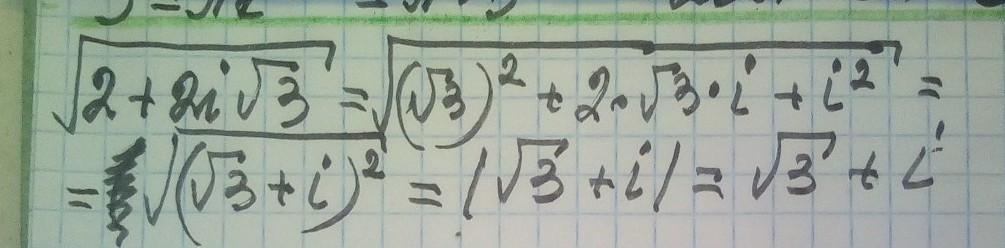 √(2 + 2i√3) = √((√3)² + 2·√3·i + i²) =
= √((√3 + i)²) = |√3 + i| = √3 + i